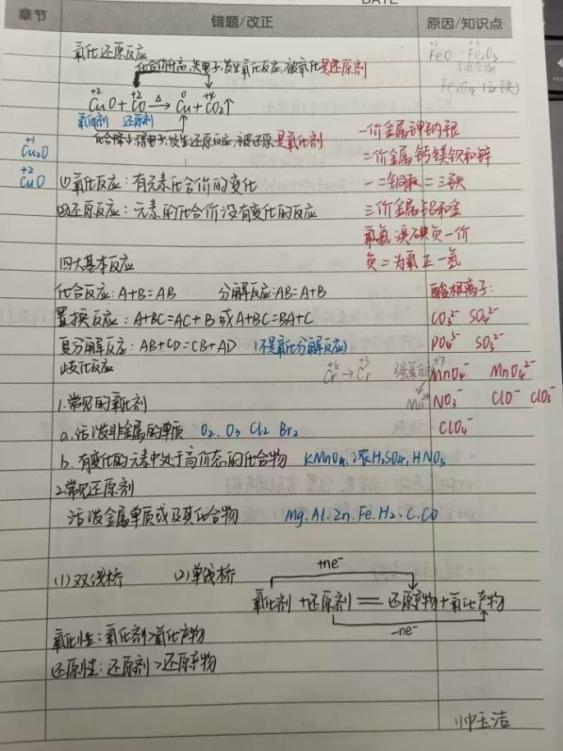 章节 错题/改正 原因/知识点
氧化还原反应
化合价升高,失电子,发生氧化反应,被氧化是还原剂
+2 +2 0 +4
CuO + CO △ Cu + CO₂↑
氧化剂 还原剂
化合降,得电子,发生还原反应,被还原,是氧化剂
+1
Cu₂O
+2
CuO
(1)氧化反应:有元素化合价的变化
(2)还原反应:元素的化合价没有变化的反应
四大基本反应
化合反应:A+B=AB 分解反应:AB=A+B
置换反应:A+BC=AC+B或A+BC=BA+C
复分解反应:AB+CD=CB+AD (不是氧化分解反应)
歧化反应
+6 +3
Cr → Cr
1.常见的氧化剂
a.活泼非金属的单质 O₂、O₃ Cl₂ Br₂
b.有变化的元素中处于高价态的化合物 KMnO₄、浓H₂SO₄、HNO₃
2.常见还原剂
活泼金属单质或及其化合物 Mg.Al.Zn.Fe.H₂.C.CO
(1)双线桥 (2)单线桥
+ne⁻
氧化剂+还原剂══还原产物+氧化产物
-ne⁻
氧化性:氧化剂>氧化产物
还原性:还原剂>还原产物
+2 +3
FeO Fe₂O₃
Fe₃O₄
一价金属钾钠银
二价金属钙镁钡和锌
一二铜汞二三铁
三价金属铝和金
氟氯溴碘负一价
负二为氧正一氢
酸根离子:
CO₃²⁻ SO₄²⁻
PO₄³⁻ SO₃²⁻
+7
MnO₄⁻ MnO₄²⁻
Mn²⁺
NO₃⁻ ClO⁻ ClO₃⁻
ClO₄⁻
帅玉洁